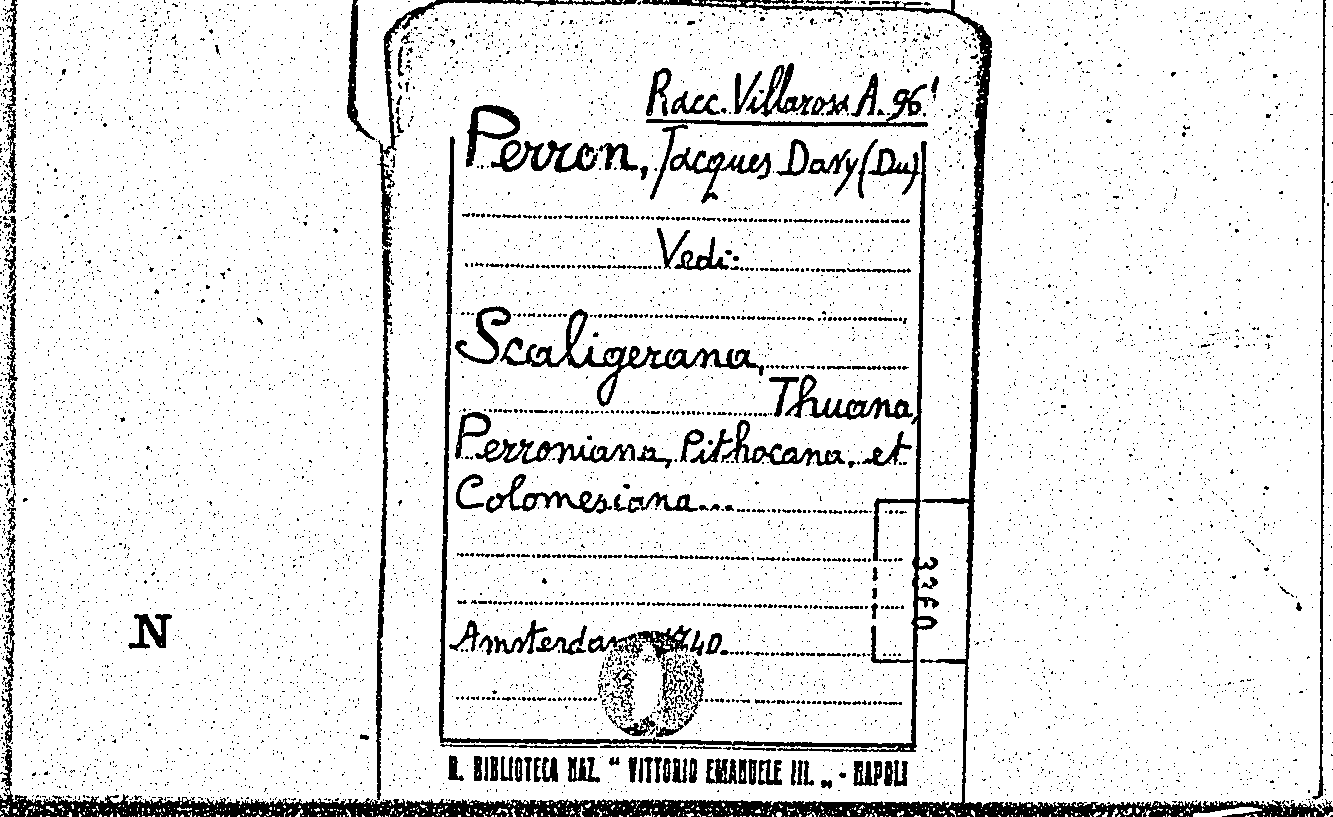 Racc. Villarosa A. 96¹
Perron, Jacques Davy (Du)
Vedi:
Scaligerana,
Thuana,
Perroniana, Pithocana, et
Colomesiana...
3360
Amsterdam 1740.
N
R. BIBLIOTECA NAZ. “ VITTORIO EMANUELE III. „ - NAPOLI